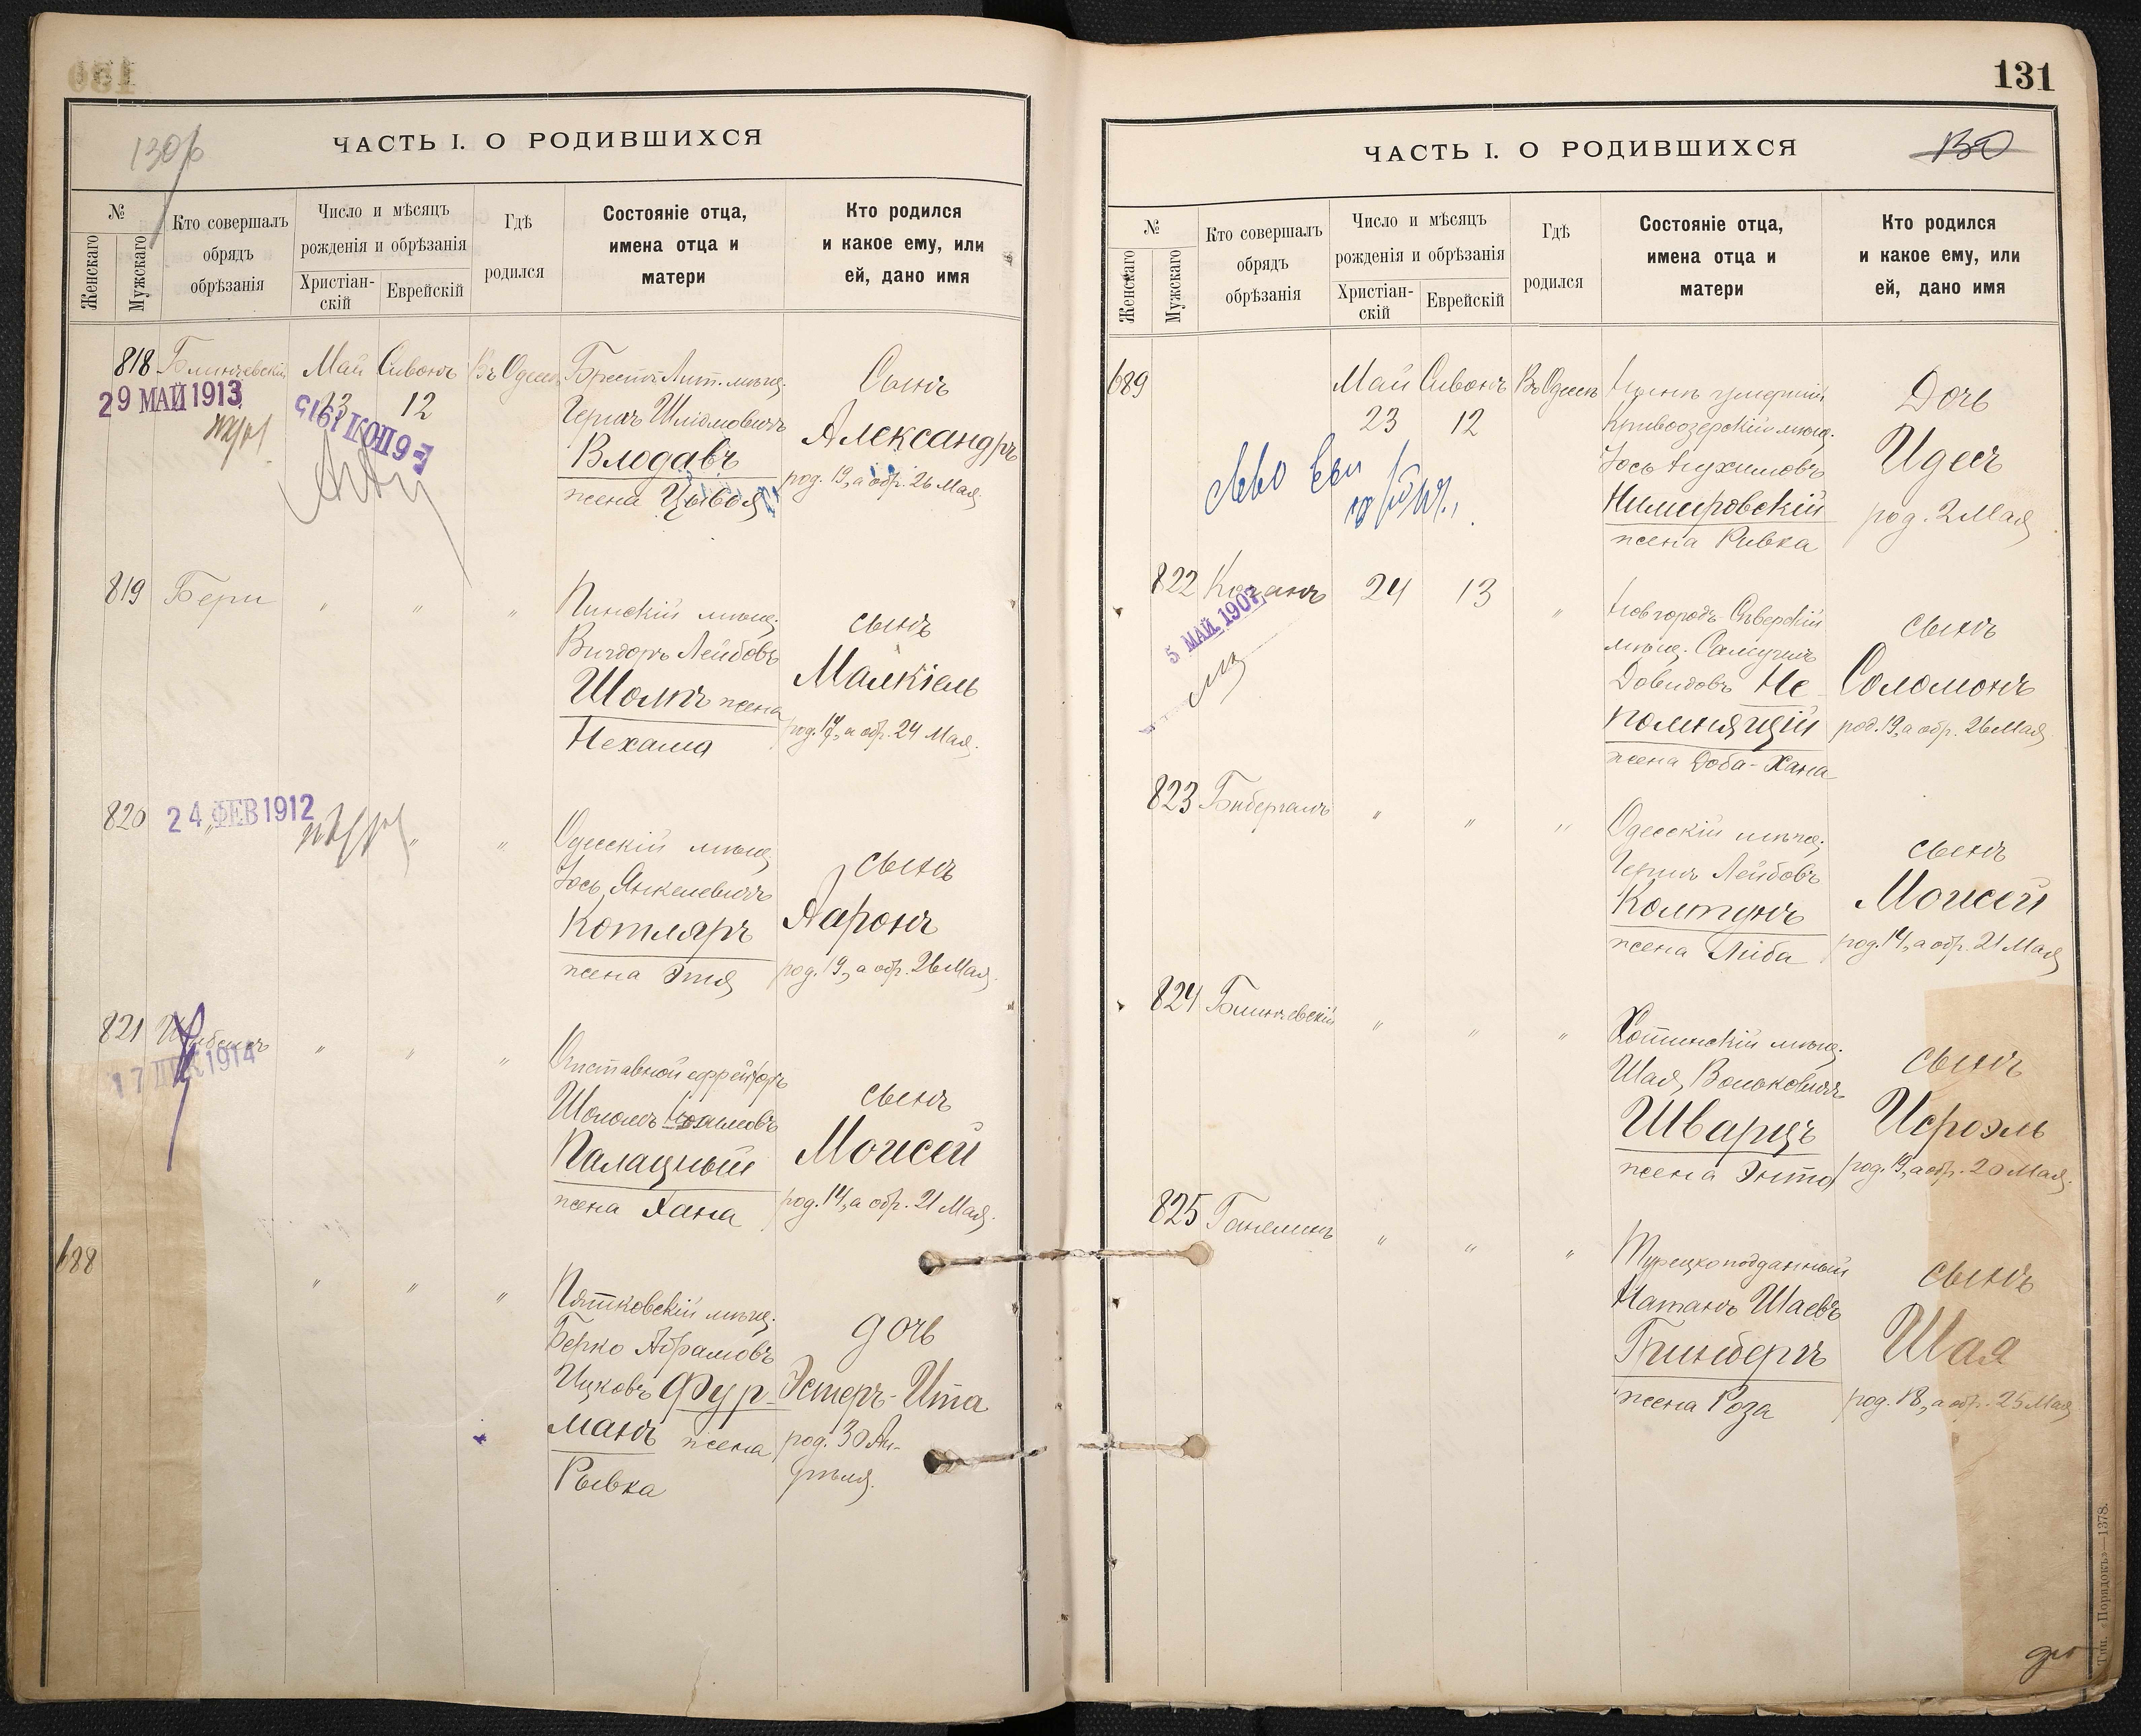 131
ЧАСТЬ I. О РОДИВШИХСЯ
№
Женскаго
Мужскаго
Кто совершалъ
обрядъ
обрѣзанія
Число и мѣсяцъ
рожденія и обрѣзанія
Христіан-
скій
Еврейскій
Гдѣ
родился
Состояніе отца,
имена отца и
матери
Кто родился
и какое ему, или
ей, дано имя
818 Блинчевскій Май Сивонъ Въ Одессѣ Брестъ-Лит. мѣщ.
12
29 МАЙ 1913
Герш Шлiомовичъ
Влодавъ
жена Цывья
Сынъ
Александръ
род. 19, а обр. 26 Мая.
819 Бери
Пинскій мѣщ.
Вигдоръ Лейбовъ
Шолтъ жена
Нехама
сынъ
Малкіель
род. 17, а обр. 24 Мая.
820
24 ФЕВ 1912
Одесскій мѣщ.
Іось Янкелевичъ
Котляръ
жена Этя
сынъ
Ааронъ
род. 19, а обр. 26 Мая.
821
17 1914
Отставной ефрейторъ
Шоломъ
Палацный
жена Хана
сынъ
Моисей
род. 14, а обр. 21 Мая.
688
Пятковскій мѣщ.
Берко Абрамовъ
Ицковъ Фур-
манъ жена
Рывка
дочь
Эстеръ-Ита
род. 30 Ап-
рѣля.
ЧАСТЬ I. О РОДИВШИХСЯ
№
Женскаго
Мужскаго
Кто совершалъ
обрядъ
обрѣзанія
Число и мѣсяцъ
рожденія и обрѣзанія
Христіан-
скій
Еврейскій
Гдѣ
родился
Состояніе отца,
имена отца и
матери
Кто родился
и какое ему, или
ей, дано имя
689 Май Сивонъ Въ Одессѣ
23 12
Кривоозерскій мѣщ.
Іось Нухимовъ
Нимировскій
жена Ривка
Дочь
Идесъ
род. 2 Мая
822 Каганъ 24 13
5 МАЙ 1907
Новгородъ-Сѣверскій
мѣщ. Самуилъ
Довидовъ Не-
помнящій
жена Доба-Хана
сынъ
Соломонъ
род. 19, а обр. 26 Мая
823
Одесскій мѣщ.
Герш Лейбовъ
Колтунъ
жена Либа
сынъ
Моисей
род. 14, а обр. 21 Мая
824 Блинчевскій
Хотинскій мѣщ.
Шая Вольковичъ
Шварцъ
жена Энта
сынъ
Исроэль
род. 19, а обр. 20 Мая.
825 Ганелинъ
Турецкоподданный
Натанъ Шаевъ
Гринбергъ
жена Роза
сынъ
Шая
род. 18, а обр. 25 Мая
Тип. «Порядокъ»—1378.